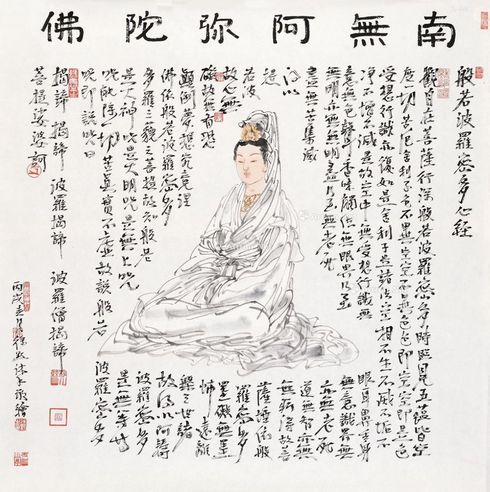 南無阿弥陀佛
般若波羅密多心經
觀自在菩薩行深般若波羅密多時照見五蘊皆空
度一切苦厄舍利子色不異空空不異色色即是空空即是色
受想行識亦復如是舍利子是諸法空相不生不滅不垢不
净不增不減是故空中無色無受想行識無眼耳鼻舌身
意無色聲香味觸法無眼界乃至無意識界無
無明亦無無明盡乃至無老死亦無老死
盡無苦集滅道無智亦無
得以無所得故菩
提薩埵依般
若波羅密多
故心無罣礙無罣
礙故無有恐怖遠離
顛倒夢想究竟涅槃三世諸
佛依般若波羅密多故得阿耨
多羅三藐三菩提故知般若波羅密多
是大神咒是大明咒是無上咒是無等等
咒能除一切苦真實不虛故說般若波羅密多
咒即說咒曰
揭諦 揭諦 波羅揭諦 波羅僧揭諦
菩提娑婆訶
丙戌